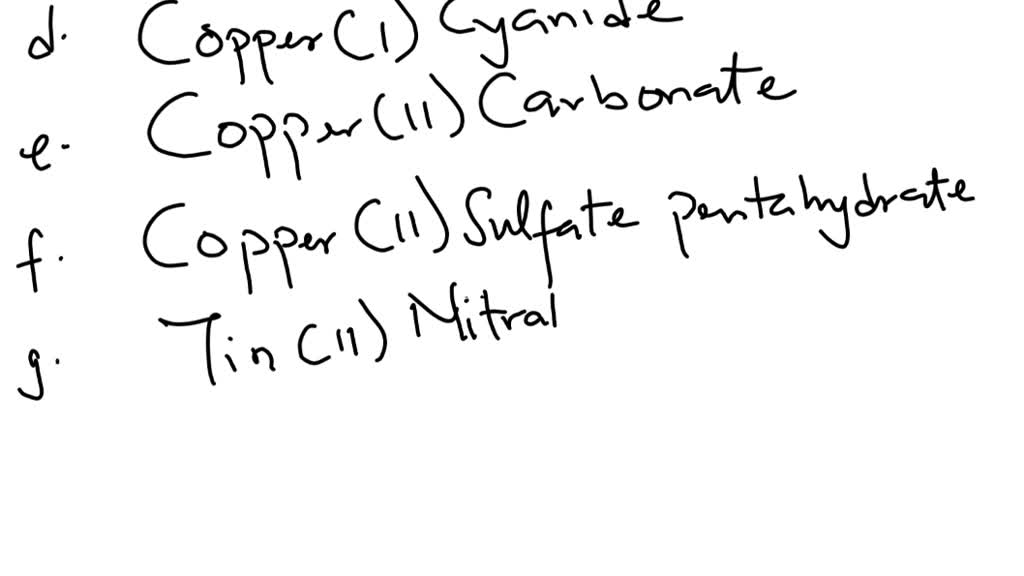 d. Copper (I) Cyanide
e. Copper (II) Carbonate
f. Copper (II) Sulfate pentahydrate
g. Tin (II) Nitral